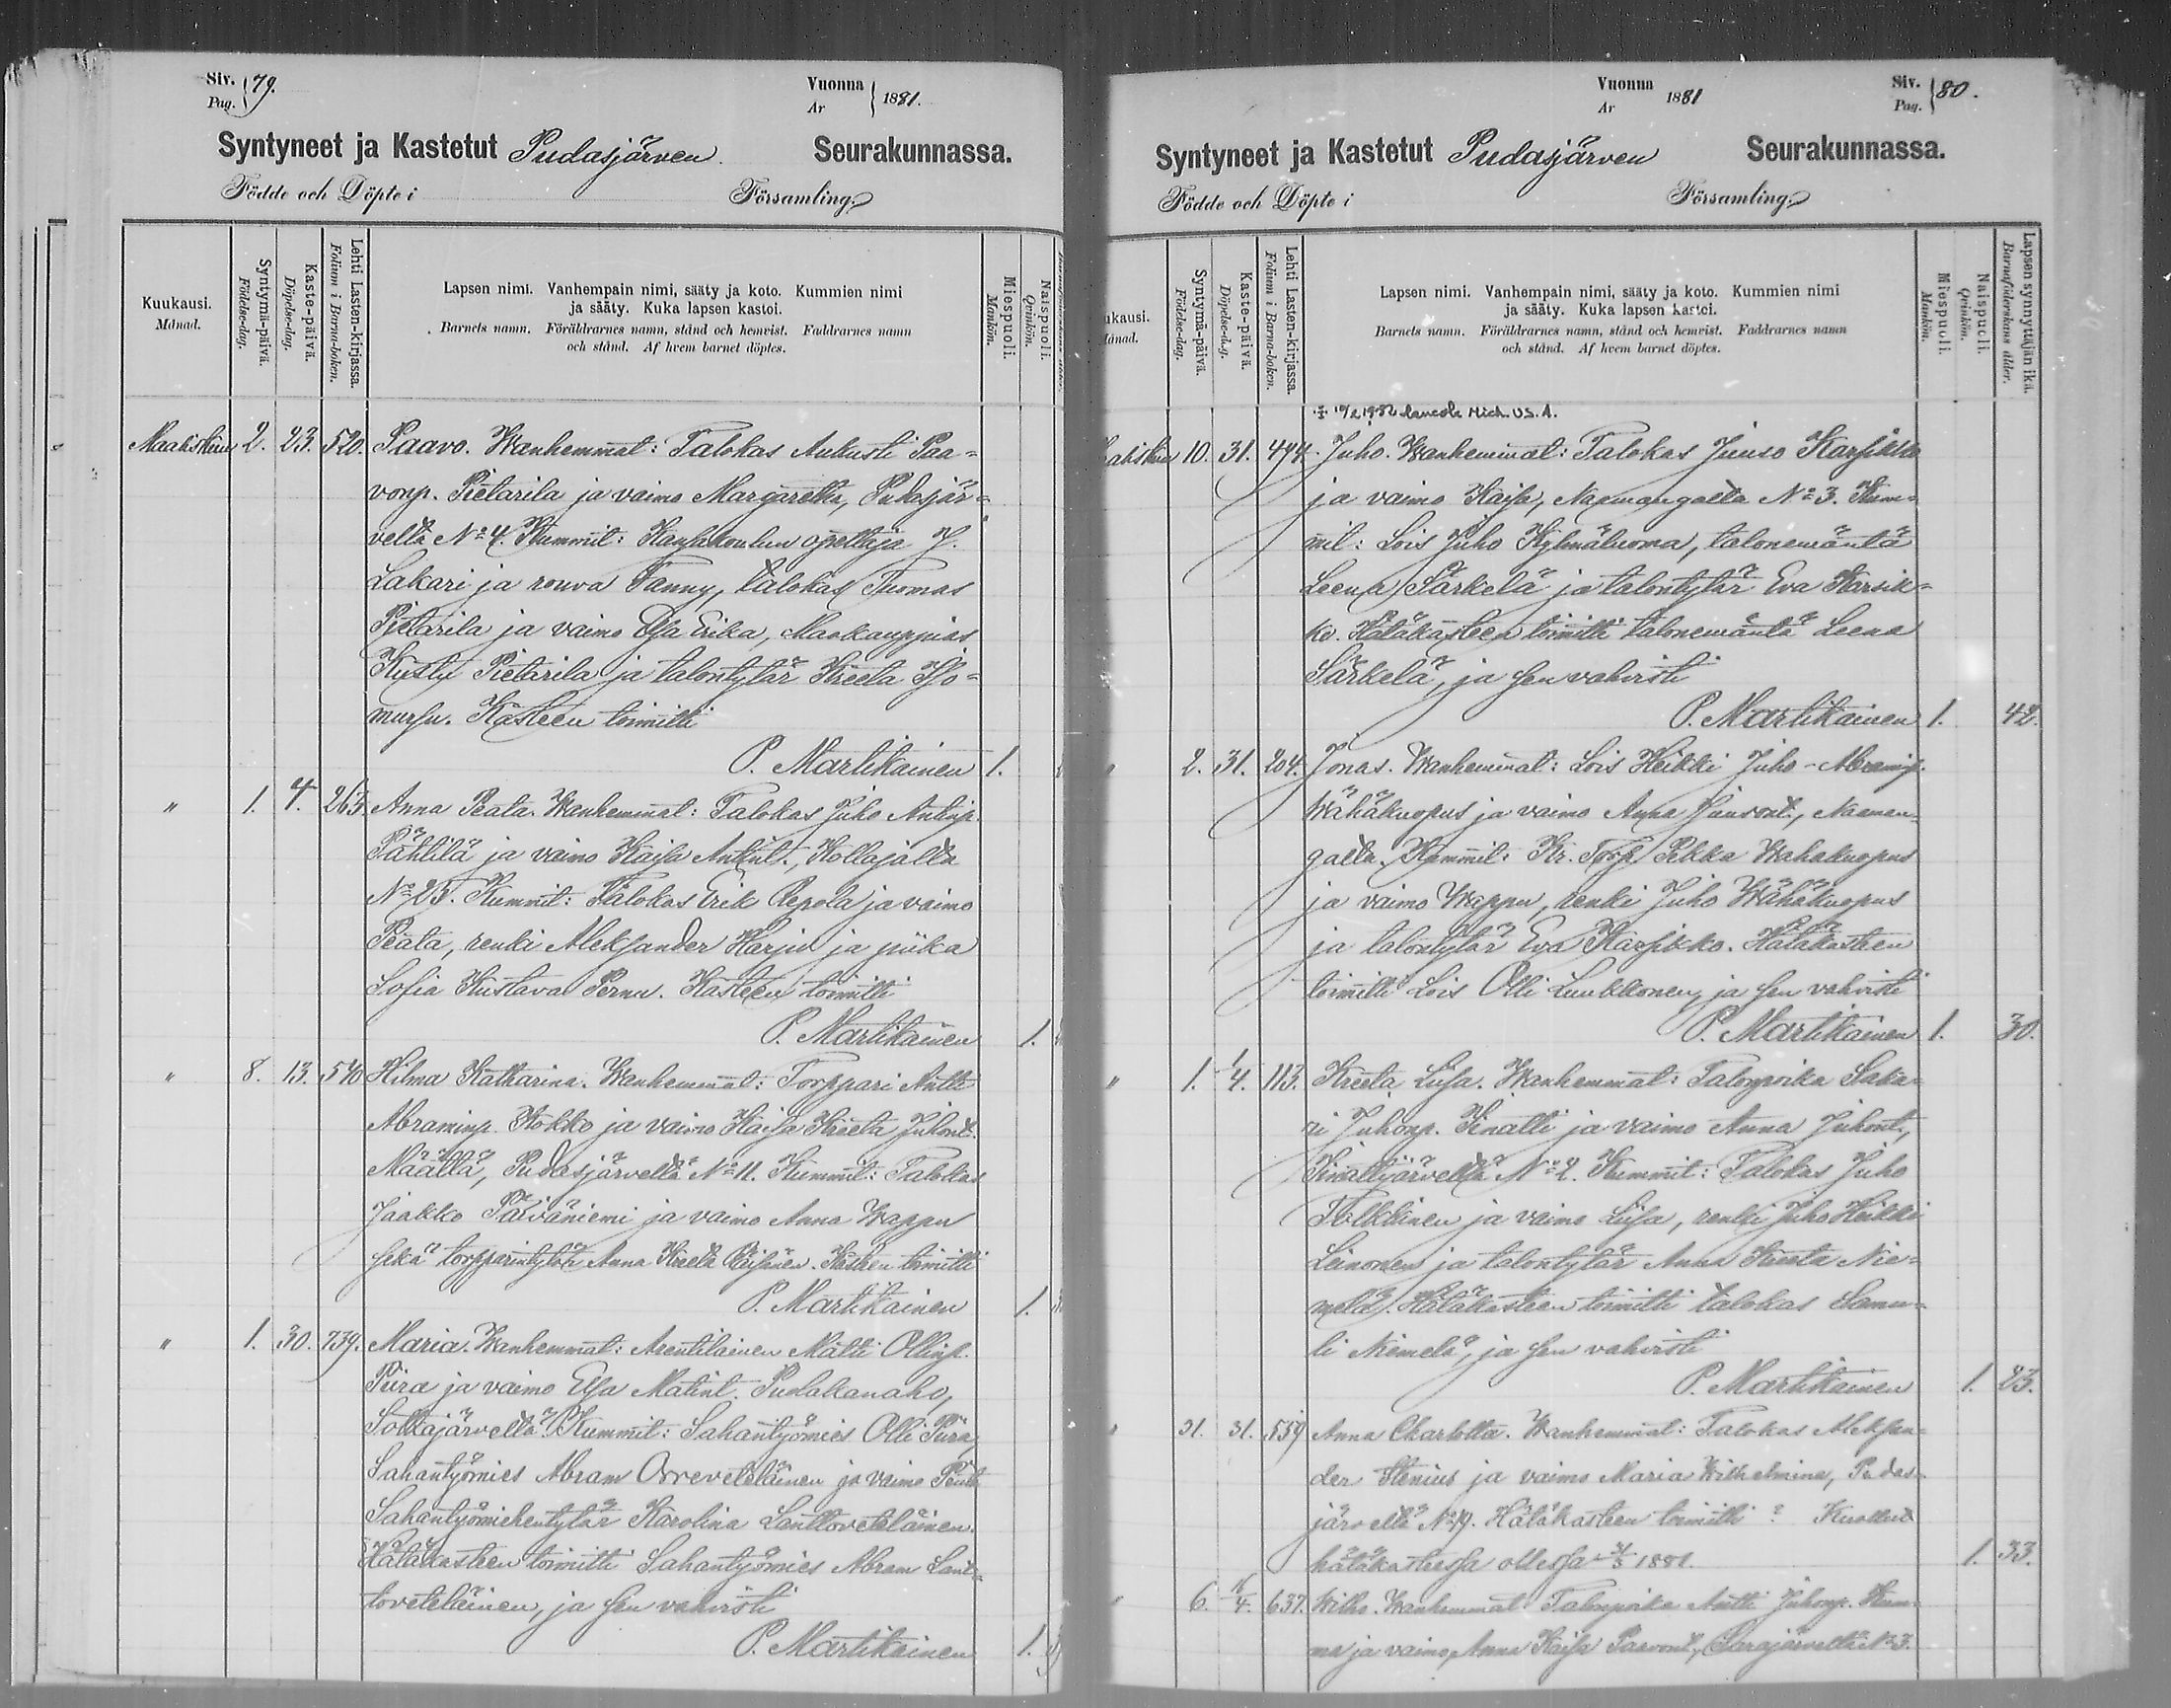 Siv. Pag. 79.
Vuonna Ar 1881.
Syntyneet ja Kastetut Pudasjärven Seurakunnassa.
Födde och Döpte i Församling.
Kuukausi. Månad.
Syntymä-päivä. Födelse-dag.
Kaste-päivä. Döpelse-dag.
Lehti Lasten-kirjassa. Folium i Barna-boken.
Lapsen nimi. Vanhempain nimi, sääty ja koto. Kummien nimi
ja sääty. Kuka lapsen kastoi.
Barnets namn. Föräldrarnes namn, stånd och hemvist. Faddrarnes namn
och stånd. Af hvem barnet döptes.
Miespuoli. Mankön.
Naispuoli. Qvinkön.
Maaliskuu 2. 23. 520. Paavo. Wanhemmat: Talokas Aukusti Paa-
vonp. Pietarila ja vaimo Margaretha, Pudasjär-
veltä No 4. Kummit: Kansakoulun opettaja J.
Lakari ja rouva Fanny, talokas Thomas
Pietarila ja vaimo Elsa Erika, Maakauppias
Kusty Pietarila ja talontytär Kreeta
mursu. Kasteen toimitti
P. Martikainen 1.
" 1. 4. 263 Anna Peata. Wanhemmat: Talokas Juho Antinp.
Pählilä ja vaimo Kaisa Antint., Kollajalta
No 23. Kummit: Talokas Erik Repola ja vaimo
Peata, renki Aleksander Harju ja piika
Sofia Kustava Pernu. Kasteen toimitti
P. Martikainen 1.
" 8. 13. 540 Hilma Katharina. Wanhemmat: Torppari Antti
Abraminp. Kokko ja vaimo Kaisa Kreeta Juhont.
Määttä, Pudasjärveltä No 11. Kummit: Talokas
Jaakko Päiväniemi ja vaimo Anna Wappu
sekä torpparintytär Anna Kreeta Räisänen. Kasteen toimitti
P. Martikainen 1.
" 1. 30. 739. Maria. Wanhemmat: Arentilainen Matti Ollinp.
Piira ja vaimo Elsa Matint. Puolakanaho,
Sotkajärveltä. Kummit: Sahantyömies Olli Piira,
Sahantyömies Abram Orreveteläinen ja vaimo Peata
Sahantyömiehentytär Karolina Lanttoveteläinen.
Hätäkasteen toimitti Sahantyömies Abram Lant-
toveteläinen, ja sen vahvisti
P. Martikainen 1.
Vuonna Ar 1881
Siv. Pag. 80.
Syntyneet ja Kastetut Pudasjärven Seurakunnassa.
Födde och Döpte i Församling.
ukausi. Månad.
Syntymä-päivä. Födelse-dag.
Kaste-päivä. Döpelse-dag.
Lehti Lasten-kirjassa. Folium i Barna-boken.
Lapsen nimi. Vanhempain nimi, sääty ja koto. Kummien nimi
ja sääty. Kuka lapsen kastoi.
Barnets namn. Föräldrarnes namn, stånd och hemvist. Faddrarnes namn
och stånd. Af hvem barnet döptes.
Miespuoli. Mankön.
Naispuoli. Qvinkön.
Lapsen synnyttäjän ikä. Barnaföderskans ålder.
Mich. U.S.A.
aliskuu 10. 31. 494. Juho. Wanhemmat: Talokas Juuso Karsikko
ja vaimo Kaisa, Naamangalta No 3. Kum-
mit: Lois Juho Kylmäluoma, talonemäntä
Leena Särkelä ja talontytär Eva Karsik-
ko. Hätäkasteen toimitti talonemäntä Leena
Särkelä, ja sen vahvisti
P. Martikainen 1. 42.
" 2. 31. 204. Jonas. Wanhemmat: Lois Heikki Juho-Abramp.
Wähäkuopus ja vaimo Anna Juusont., Naaman-
galta. Kummit: Kr. Torp. Pekka Wahakuopus
ja vaimo Wappu, renki Juho Wähäkuopus
ja talontytär Eva Karsikko. Hätäkasteen
toimitti Lois Olli Luukkonen, ja sen vahvisti
P. Martikainen 1. 30.
" 1. 1/4. 113. Kreeta Liisa. Wanhemmat: Talonpoika Saka-
ri Juhonp. Kinatti ja vaimo Anna Juhont.,
Kinattijärveltä No 2. Kummit: Talokas Juho
Tolkkinen ja vaimo Liisa, renki Juho Heikki
Leinonen ja talontytär Anna Kreeta Nie-
melä. Hätäkasteen toimitti talokas Samu-
li Niemelä, ja sen vahvisti
P. Martikainen 1. 23.
" 31. 31. 559 Anna Charlotta. Wanhemmat: Talokas Aleksan-
der Stenius ja vaimo Maria Wilhelmina, Pudas-
järveltä No 19. Hätäkasteen toimitti ? Kuollut
hätäkasteessa ollessa 31/3 1881. 1. 33.
" 6. 637. Wilho. Wanhemmat: Talonpoika Antti Juhonp. Hum-
ma ja vaimo, Anna Kaisa Paavont., Sarajärveltä No 3.